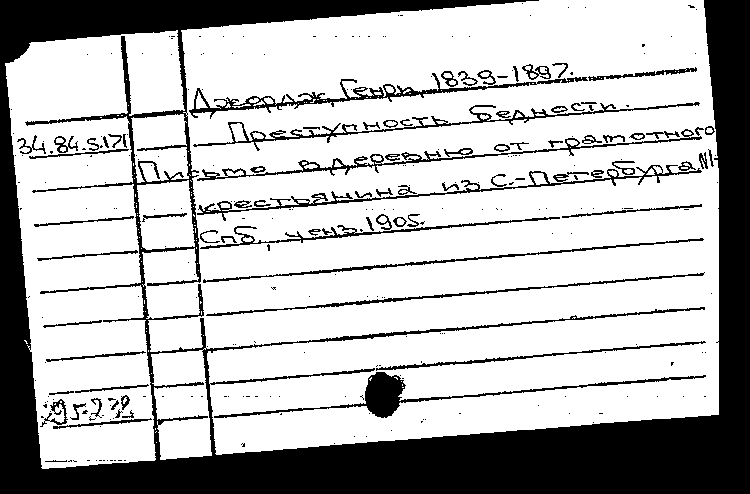 Джордж, Генри, 1839-1897.
34.84.5.171 Преступность бедности.
Письмо в деревню от грамотного
крестьянина из С.-Петербурга.
Спб., ценз. 1905.